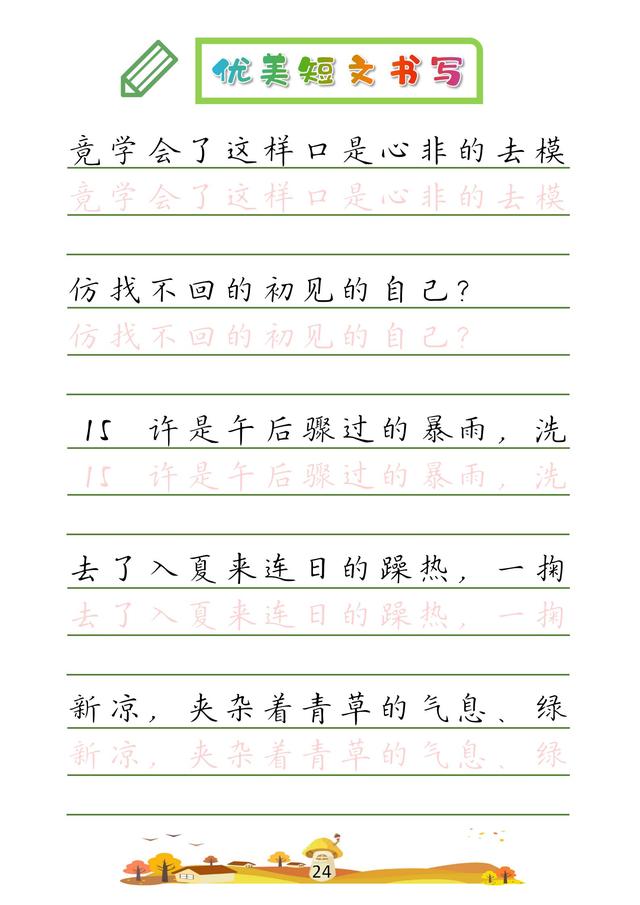 优美短文书写
竟学会了这样口是心非的去模
竟学会了这样口是心非的去模
仿找不回的初见的自己?
仿找不回的初见的自己?
15 许是午后骤过的暴雨，洗
15 许是午后骤过的暴雨，洗
去了入夏来连日的躁热，一掬
去了入夏来连日的躁热，一掬
新凉，夹杂着青草的气息、绿
新凉，夹杂着青草的气息、绿
24